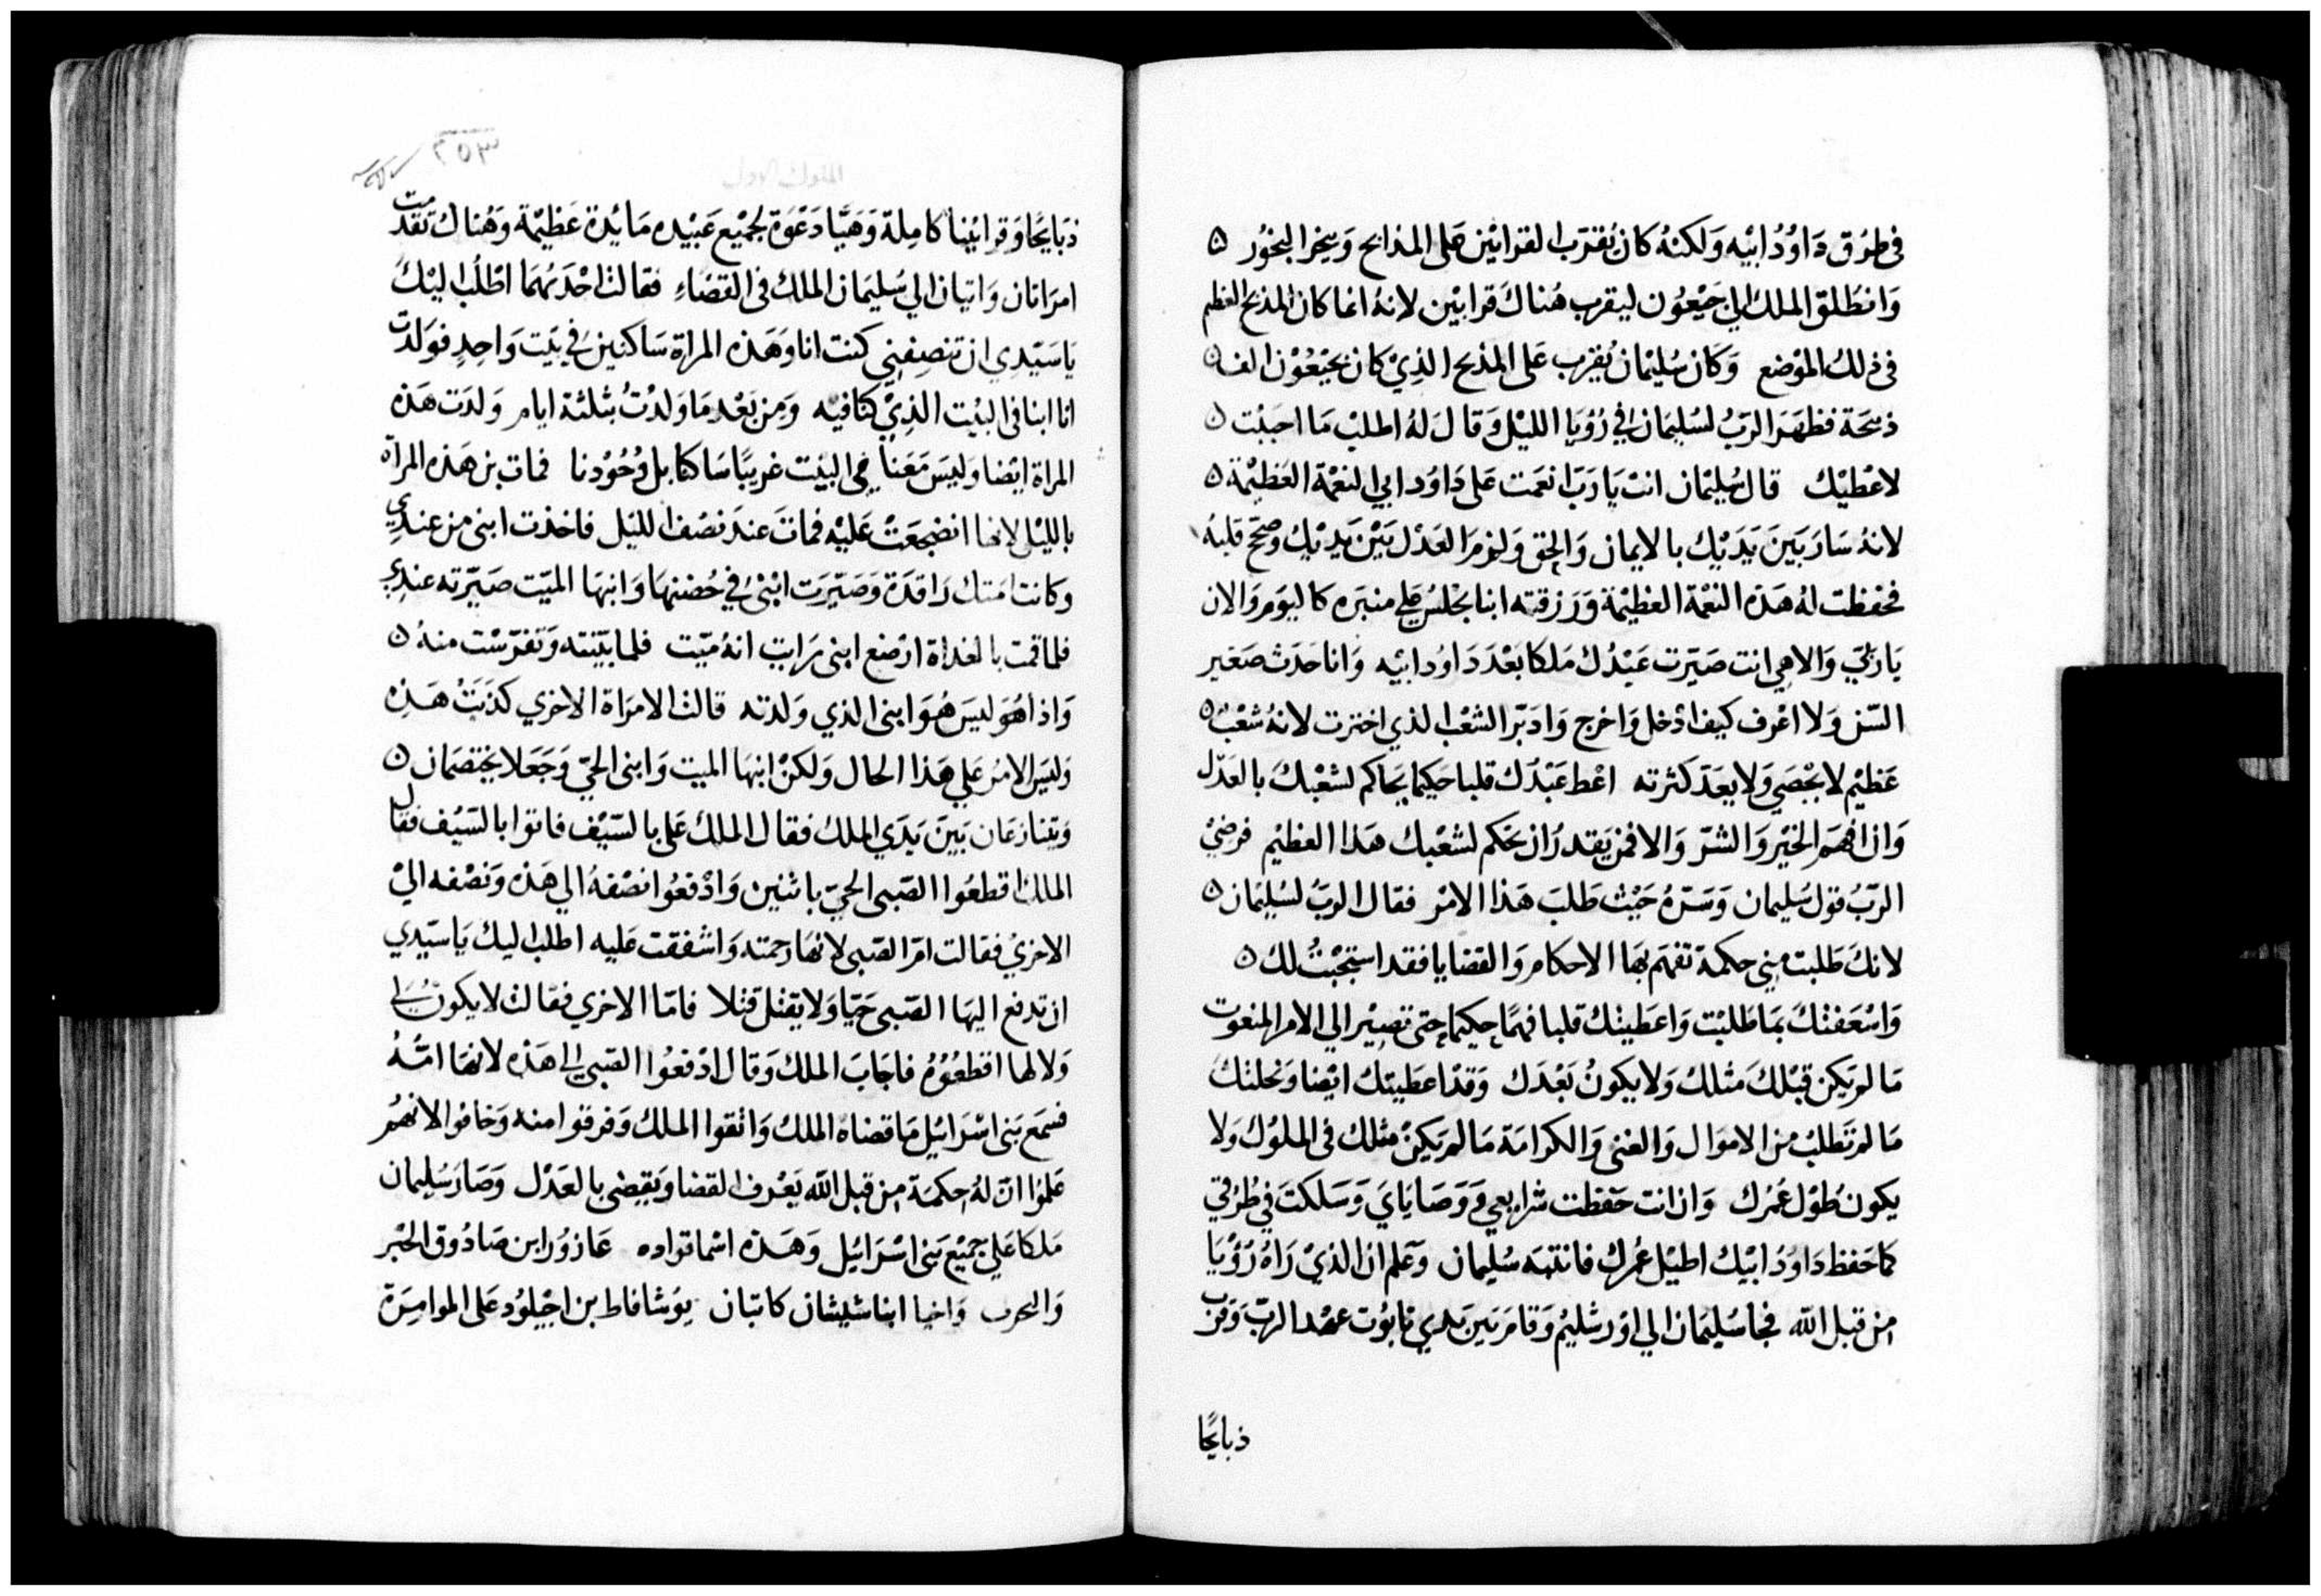 في طرق داوُد ابيه ولكنه كان يُقرّب القرابين على المذابح ويبخر البخور ه
وانطلق الملك الي جبعون ليقرب هناك قرابين لانه انما كان المذبح العظيم
في ذلك الموضع وكان سُليمان يُقرب على المذبح الذي كان بجبعون الف ه
ذبيحة فظهر الربّ لسليمان في رؤيا الليل وقال له اطلب ما احببت ه
لاعطيك قال سُليمان انت يا ربّ انعمت على داود ابي النعمة العظيمة ه
لانه سار بين يديك بالايمان والحق ولزم العدل بين يديك وصحّ قلبه
فحفظت له هذه النعمة العظيمة ورزقته ابنا يجلس علي منبره كاليوم والان
يا ربّي والاهي انت صيّرت عبدك ملكا بعد داود ابيه وانا حدث صغير
السّن ولا اعرف كيف ادخل واخرج وادبّر الشعب الذي اخترت لانه شعب ه
عظيم لا يحصي ولا يعدّ كثرته اعط عبدك قلبا حكيما يحاكم لشعبك بالعدل
وان افهم الخير والشرّ والا فمن يقدر ان يحكم لشعبك هذا العظيم فرضي
الربّ قول سليمان وسرّه حيث طلب هذا الامر فقال الربّ لسليمان ه
لانك طلبت مني حكمة تفهم بها الاحكام والقضايا فقد استجبتُ لك ه
واسعفتك بما طلبت واعطيتك قلبا فهمًا حكيما حتى تصير الي الامر المنعوت
ما لم يكن قبلك مثلك ولا يكون بعدك وقد اعطيتك ايضا ونحلتك
ما لم تطلب من الاموال والغنى والكرامة ما لم يكن مثلك في الملوك ولا
يكون طول عمرك وان انت حفظت شرايعي ووصاياي وسلكت في طرقي
كما حفظ داود ابيك اطيل عمرك فانتبه سُليمان وعلم ان الذي راه رؤيا
من قبل الله فجا سليمان الي اورشليم وقام بين يدي تابوت عهد الربّ وقرب
ذبايحًا
٢٥٣
الملوك الاول
ذبايحًا وقرابينا كاملة وهيّا دعوة لجميع عبيده مائدة عظيمة وهناك تقدمت
امراتان واتيان الي سُليمان الملك في القضاء فقالت احدتهما اطلب اليك
يا سيّدي ان تنصفني كنت انا وهذه المراة ساكنين في بيت واحد فولدت
انا ابنا في البيت الذي كنا فيه ومن بعد ما ولدت بثلثة ايام ولدت هذه
المراة ايضا وليس معنا في البيت غريبًا ساكنا بل وحودنا فمات بن هذه المراة
بالليل لانها انضجعت عليه فمات عند نصف الليل فاخذت ابني من عندي
وكانت امتك راقدة وصيّرت ابني في حضنها وابنها الميّت صيّرته عندي
فلما قمت بالغداة ارضع ابني رايت انه ميّت فلما بيّنته وتفرّست منه ه
واذا هو ليس هو ابني الذي ولدته قالت الامراة الاخري كذبت هذه
وليس الامر علي هذا الحال ولكن ابنها الميت وابني الحيّ وجعلا يختصمان ه
ويتنازعان بين يدي الملك فقال الملك علي بالسّيف فاتوا بالسّيف فقال
الملك اقطعوا الصّبي الحيّ باثنين وادفعوا نصفه الي هذه ونصفه الي
الاخري فقالت امّ الصّبي لانها رحمته واشفقت عليه اطلب اليك يا سيّدي
ان تدفع اليها الصّبي حيّا ولا يقتل قتلا فامّا الاخري فقالت لا يكون لي
ولا لها اقطعوه فاجاب الملك وقال ادفعوا الصّبي الي هذه لانها امّه
فسمع بني اسرائيل ما قضاه الملك واتقوا الملك وفرقوا منه وخافوا لانهم
علموا انّ له حكمة من قبل الله يعرف القضا ويقضي بالعدل وصار سليمان
ملكا علي جميع بني اسرائيل وهذه اسما قواده عازور ابن صادوق الحبر
والحرب واخيا ابنا شيشان كاتبان يوشافاط بن احيلود على الموامرة